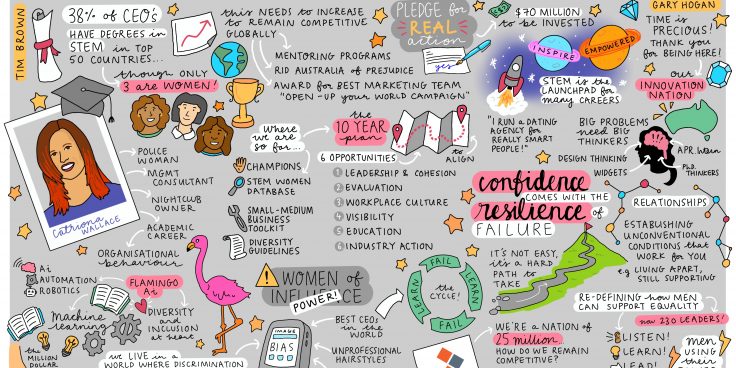 TIM BROWN
38% of CEO's
HAVE DEGREES in
STEM in TOP
50 COUNTRIES...
though only
3 are WOMEN!
this NEEDS to INCREASE
to REMAIN COMPETITIVE
GLOBALLY
MENTORING PROGRAMS
RID AUSTRALIA of PREJUDICE
AWARD for BEST MARKETING TEAM
"OPEN-UP your WORLD CAMPAIGN"
PLEDGE for
REAL
action
yes
$70 MILLION
to BE INVESTED
INSPIRE
EMPOWERED
STEM is the
LAUNCHPAD for
many CAREERS
GARY HOGAN
TIME is
PRECIOUS!
THANK you
for BEING HERE!
our
INNOVATION
NATION
Catriona
WALLACE
POLICE
WOMAN
MGMT
CONSULTANT
NIGHTCLUB
OWNER
ACADEMIC
CAREER
ORGANISATIONAL
behaviour
Where
we are
so far...
CHAMPIONS
STEM WOMEN
DATABASE
SMALL-MEDIUM
BUSINESS
TOOLKIT
DIVERSITY
GUIDELINES
the
10 YEAR
plan
to
ALIGN
6 OPPORTUNITIES
1 LEADERSHIP & COHESION
2 EVALUATION
3 WORKPLACE CULTURE
4 VISIBILITY
5 EDUCATION
6 INDUSTRY ACTION
"I RUN a DATING
AGENCY for
REALLY SMART
PEOPLE!"
BIG PROBLEMS
need BIG
THINKERS
DESIGN THINKING
WIDGETS
Ph.D.
THINKERS
confidence
COMES WITH THE
resilience of
FAILURE
IT'S NOT EASY,
it's a HARD
PATH to
TAKE
RELATIONSHIPS
ESTABUSHING
UNCONVENTIONAL
CONDITIONS that
WORK for YOU
e.g LIVING APART,
STILL SUPPORTING
RE-DEFINING how MEN
CAN SUPPORT EQUALITY
now 230 LEADERS!
LISTEN!
LEARN!
LEAD!
men
USING
their
Ai
AUTOMATION
ROBOTICS
FLAMINGO
Ai
Machine
learning
DIVERSITY
and
INCLUSION
at heart
the
MILLION
DOLLAR
WE LIVE in a
WORLD WHERE DISCRIMINATION
WOMEN of
INFLUENCE
POWER!
IMAGE
BIAS
BEST CEO's
in the
WORLD
UNPROFESSIONAL
HAIRSTYLES
FAIL
LEARN
FAIL
LEARN
the
CYCLE!
WE'RE a NATION of
25 million.
HOW DO WE REMAIN
COMPETITIVE?